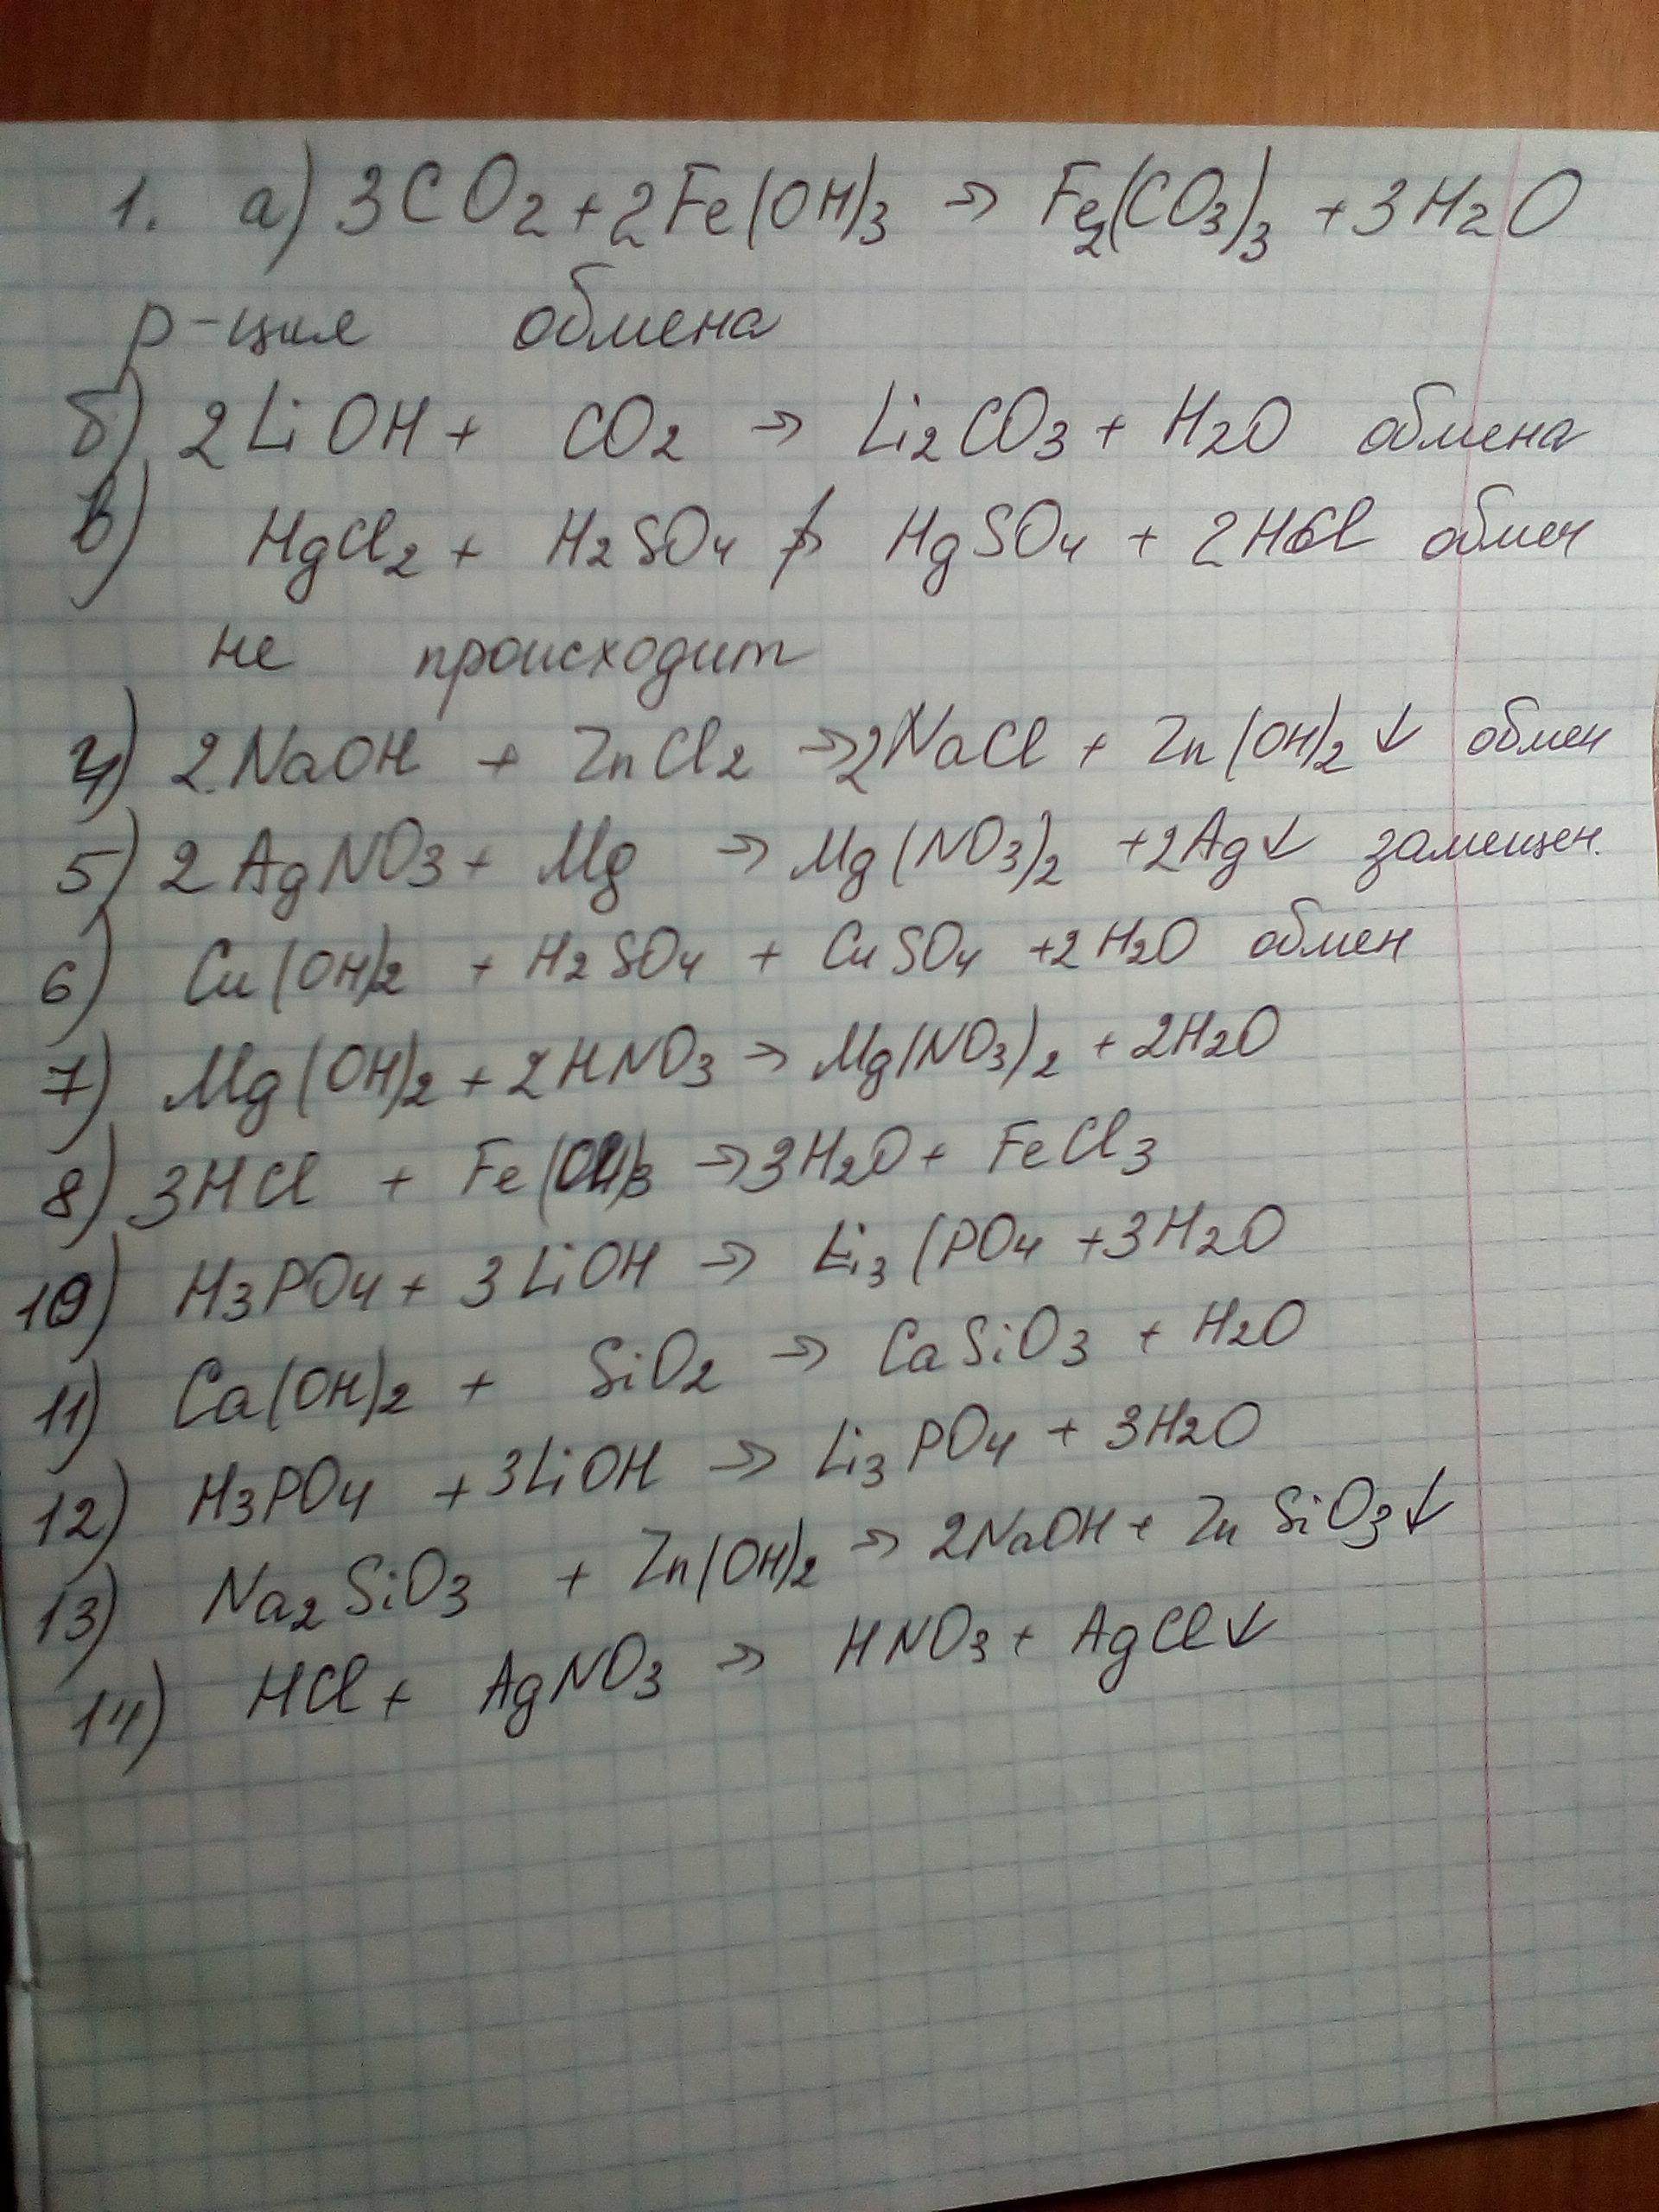 1. а) 3CO2 + 2Fe(OH)3 → Fe2(CO3)3 + 3H2O
р-ция обмена
б) 2LiOH + CO2 → Li2CO3 + H2O обмена
в) HgCl2 + H2SO4 ↛ HgSO4 + 2HCl обмен
не происходит
4) 2NaOH + ZnCl2 → 2NaCl + Zn(OH)2↓ обмен
5) 2AgNO3 + Mg → Mg(NO3)2 + 2Ag↓ замещен.
6) Cu(OH)2 + H2SO4 + CuSO4 + 2H2O обмен
7) Mg(OH)2 + 2HNO3 → Mg(NO3)2 + 2H2O
8) 3HCl + Fe(OH)3 → 3H2O + FeCl3
10) H3PO4 + 3LiOH → Li3(PO4 + 3H2O
11) Ca(OH)2 + SiO2 → CaSiO3 + H2O
12) H3PO4 + 3LiOH → Li3PO4 + 3H2O
13) Na2SiO3 + Zn(OH)2 → 2NaOH + ZnSiO3↓
14) HCl + AgNO3 → HNO3 + AgCl↓